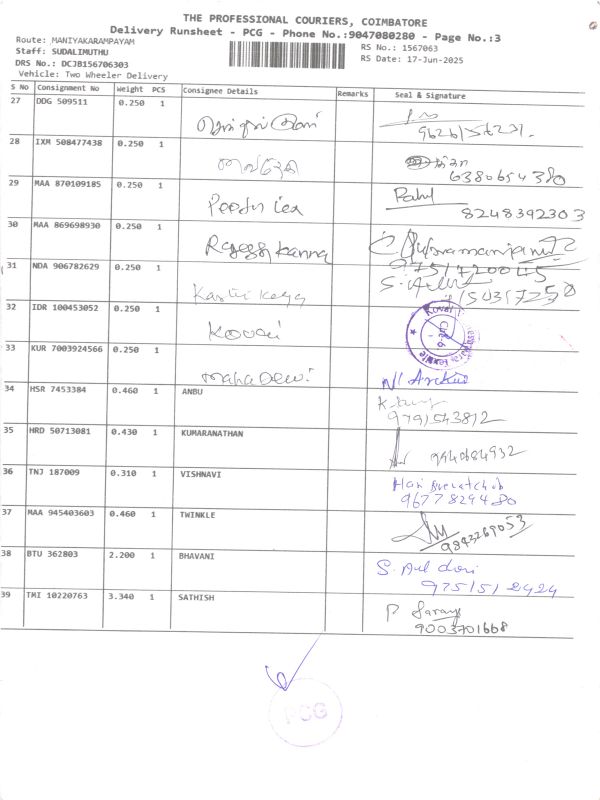 THE PROFESSIONAL COURIERS, COIMBATORE
Delivery Runsheet - PCG - Phone No.:9047080280 - Page No.:3
Route: MANIYAKARAMPAYAM
Staff: SUDALIMUTHU
DRS No.: DCJB156706303
Vehicle: Two Wheeler Delivery
RS No.: 1567063
RS Date: 17-Jun-2025
S No Consignment No Weight PCS Consignee Details Remarks Seal & Signature
27 DDG 509511 0.250 1
28 IXM 508477438 0.250 1
6380654380
29 MAA 870109185 0.250 1 Rahul
8248392303
30 MAA 869698930 0.250 1
9751720045
31 NDA 906782629 0.250 1
32 IDR 100453052 0.250 1 Kovai
33 KUR 7003924566 0.250 1 Maha Devi
34 HSR 7453384 0.460 1 ANBU
9791543812
35 HRD 50713081 0.430 1 KUMARANATHAN
36 TNJ 187009 0.310 1 VISHNAVI Hari
9677829480
37 MAA 945403603 0.460 1 TWINKLE
9843269053
38 BTU 362803 2.200 1 BHAVANI
9751512424
39 TMI 10220763 3.340 1 SATHISH P
9003701668
PCG